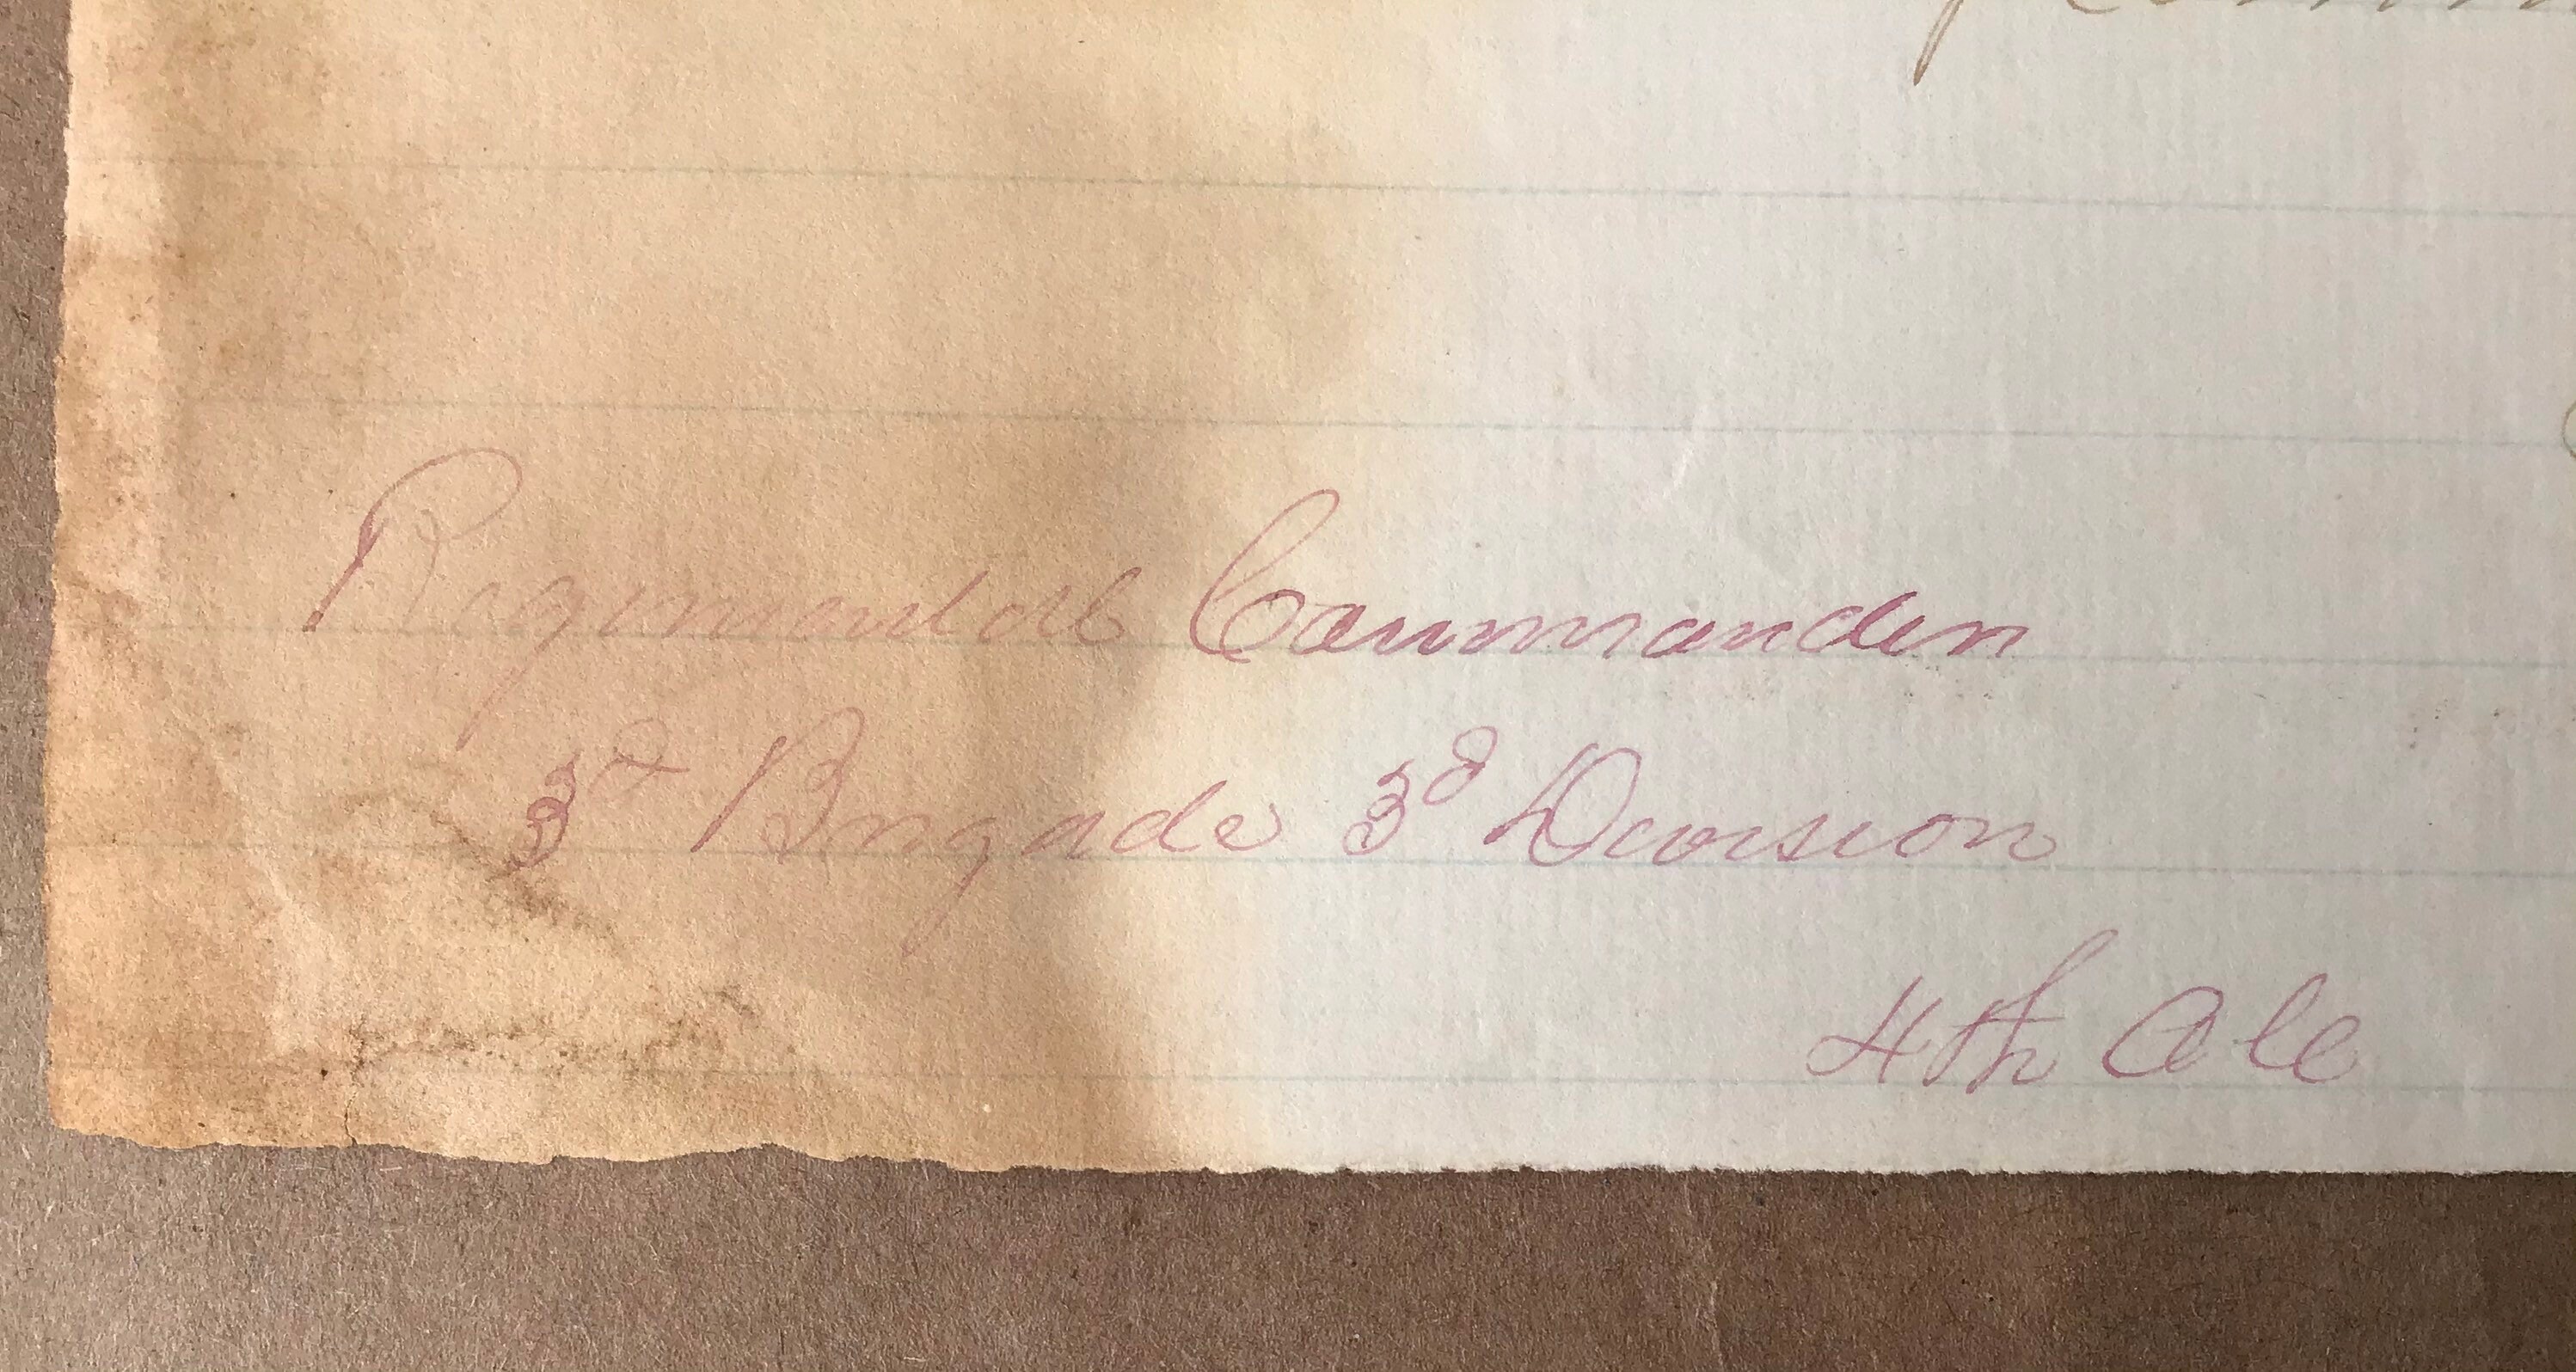 Regimental Commander
3d Brigade 3d Division
4th A C